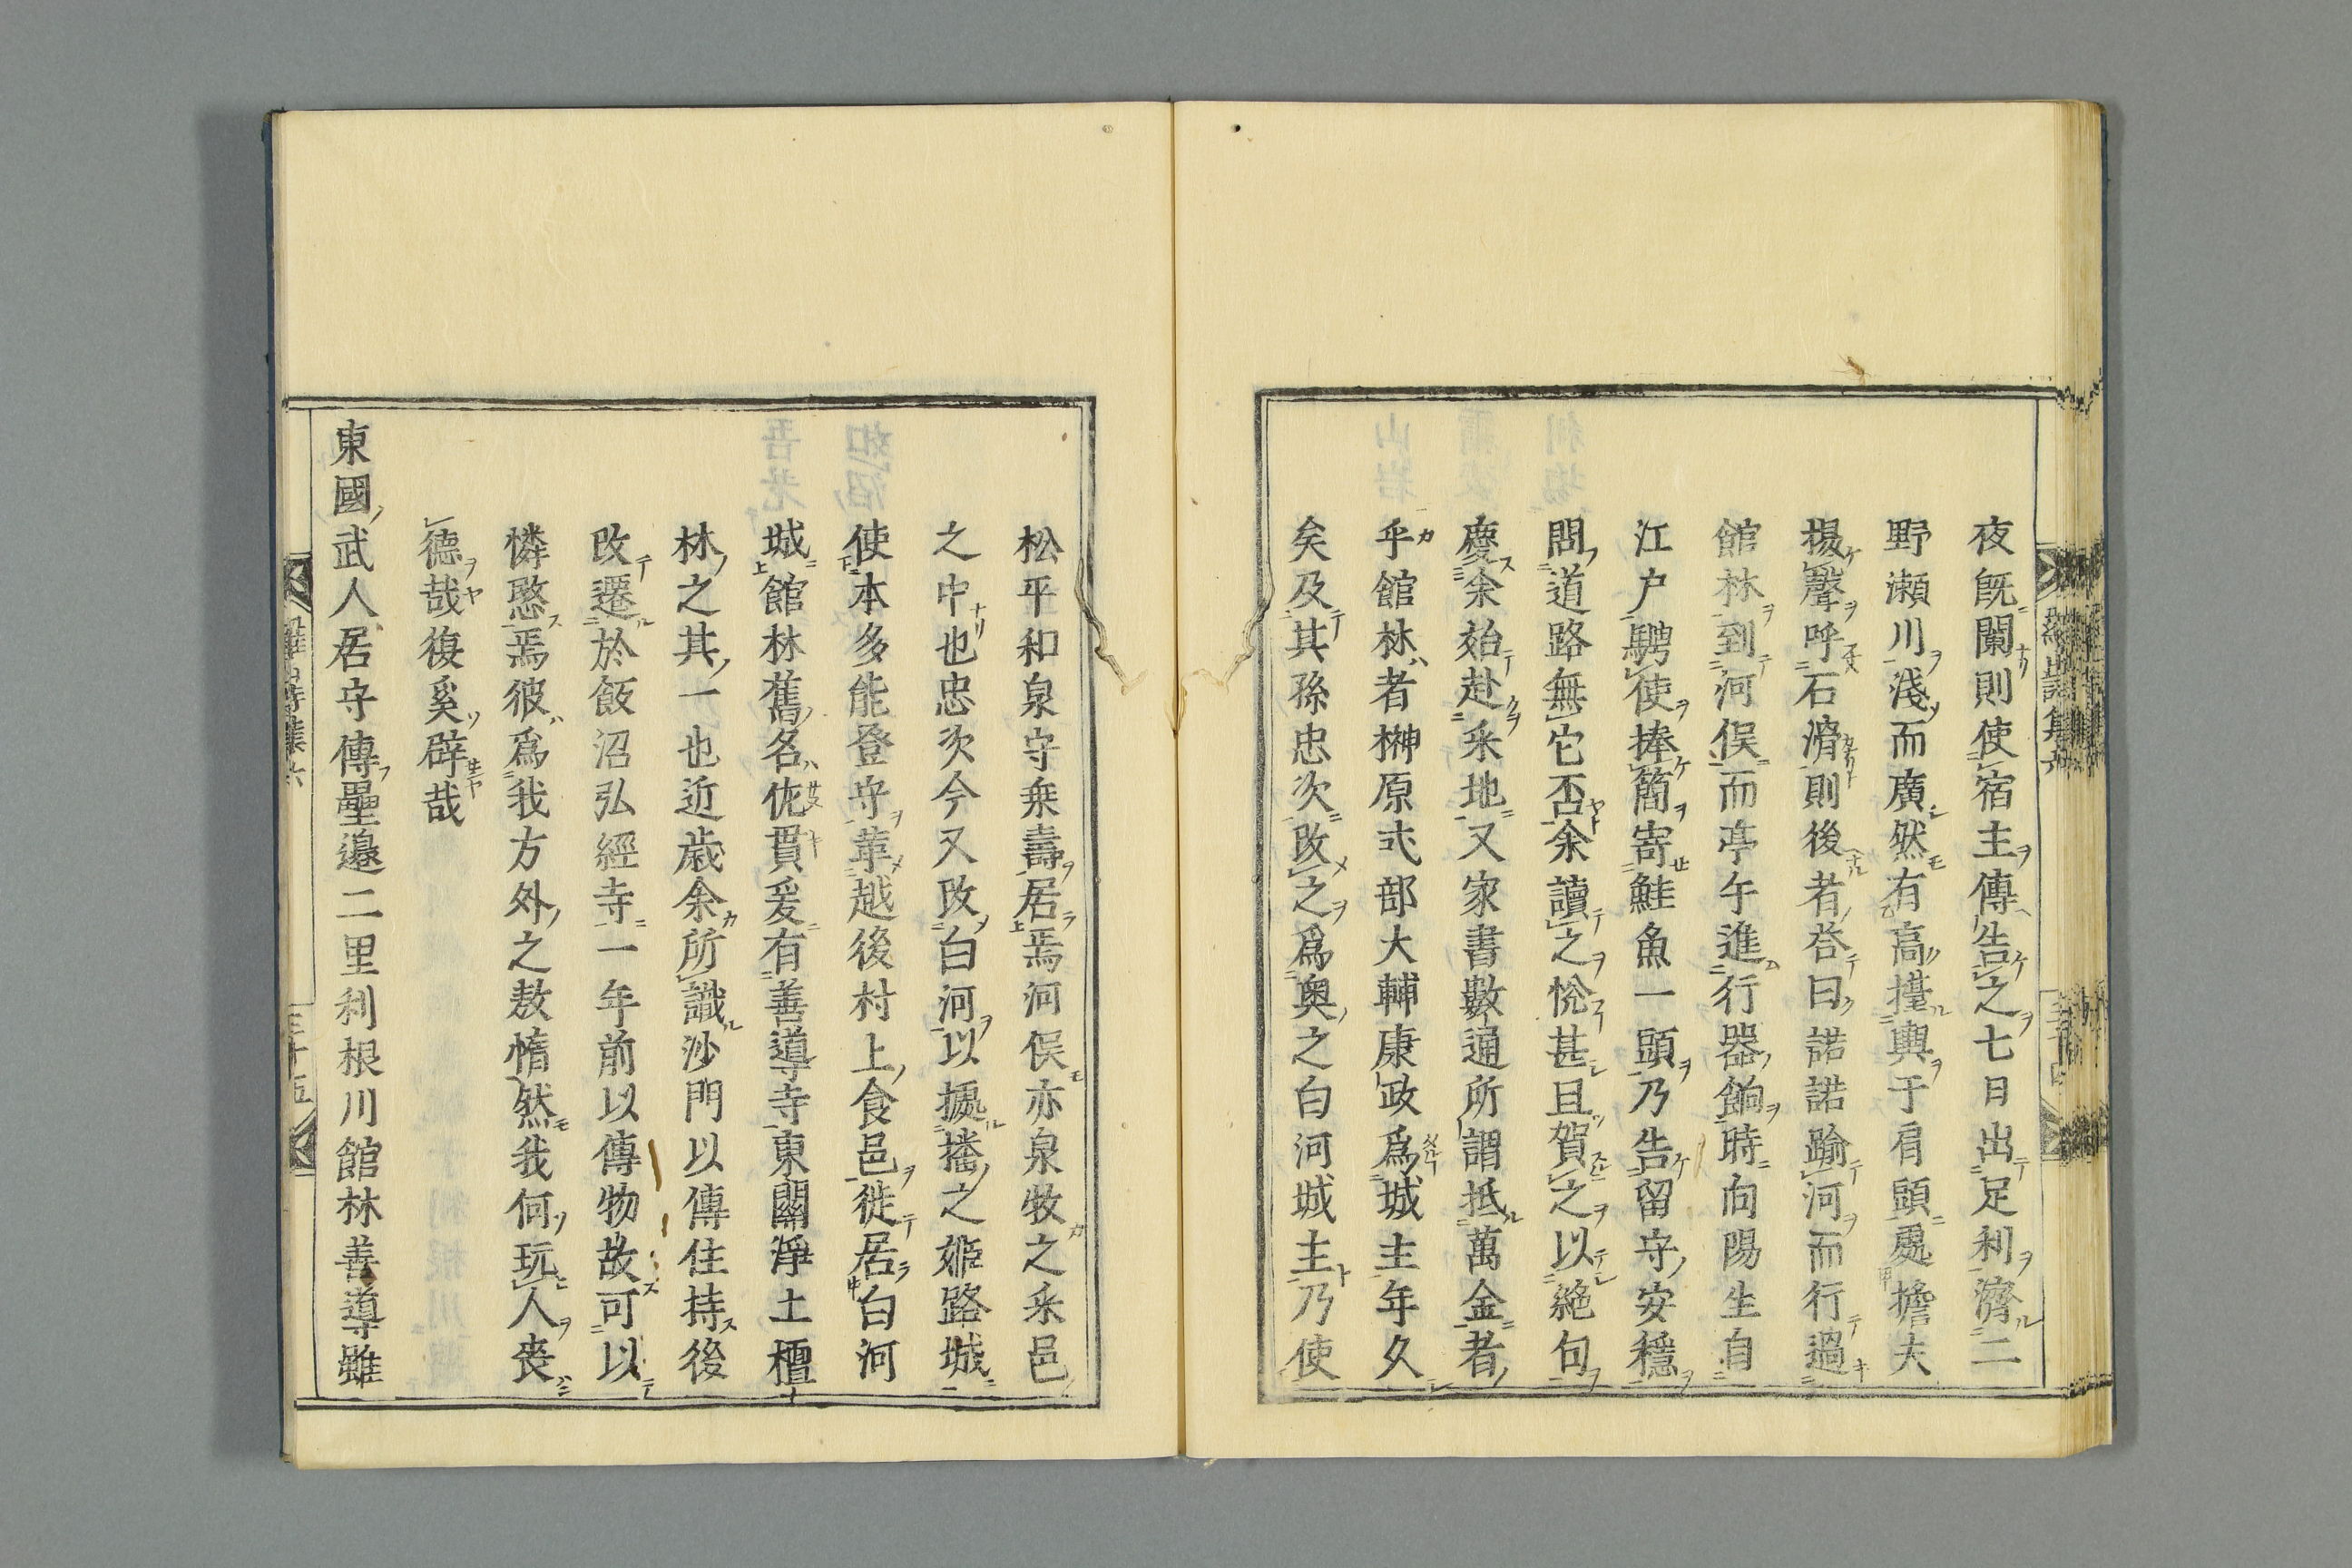 夜既闌則使宿主傳告之七日出足利濟二
野瀨川淺而廣然有高擡輿于肩頭處擔夫
揚聲呼石滑則後者荅曰諾諾踰河而行過
館林到河俣而亭午進行器餉時向陽生自
江户騁使捧簡寄鮭魚一頭乃告留守安穩
問道路無它否余讀之悅甚且賀之以絕句
慶余始赴釆地又家書數通所謂抵萬金者
乎館林者榊原式部大輔康政爲城主年久
矣及其孫忠次改之爲奧之白河城主乃使
松平和泉守乗壽居焉河俣亦泉牧之釆邑
之中也忠次今又改白河以㨿播之姬路城
使本多能登守革越後村上食邑徙居白河
城館林舊名佐貫爰有善導寺東關淨土檀
林之其一也近歳余所識沙門以傳住持後
改遷於飯沼弘經寺一年前以傳物故可以
憐愍焉彼爲我方外之敖惰然我何玩人喪
德哉復奚辟哉
東國武人居守傳壘邉二里利根川館林善導雖
羅山詩集六
三十五